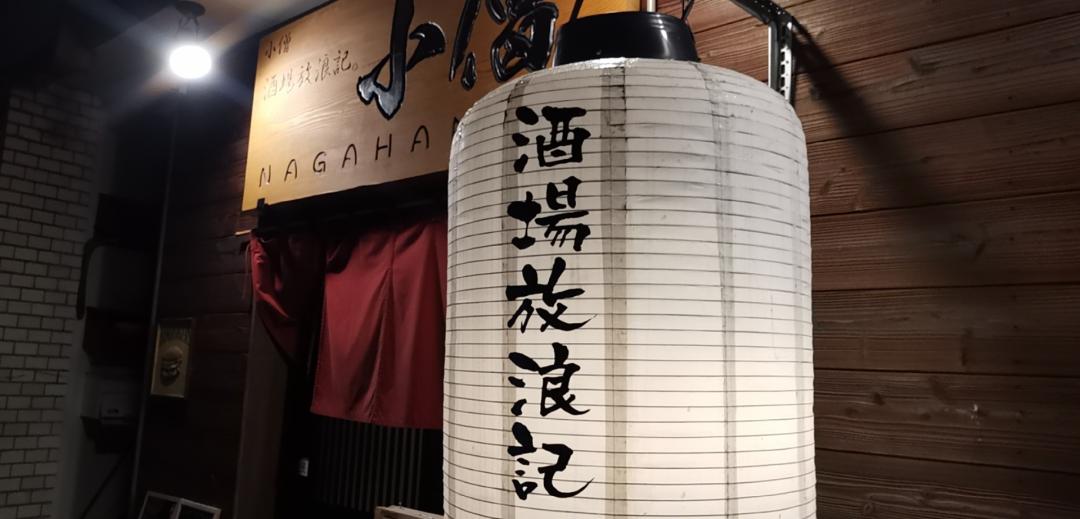 小僧
酒場放浪記。
小僧
NAGAHA
酒場放浪記